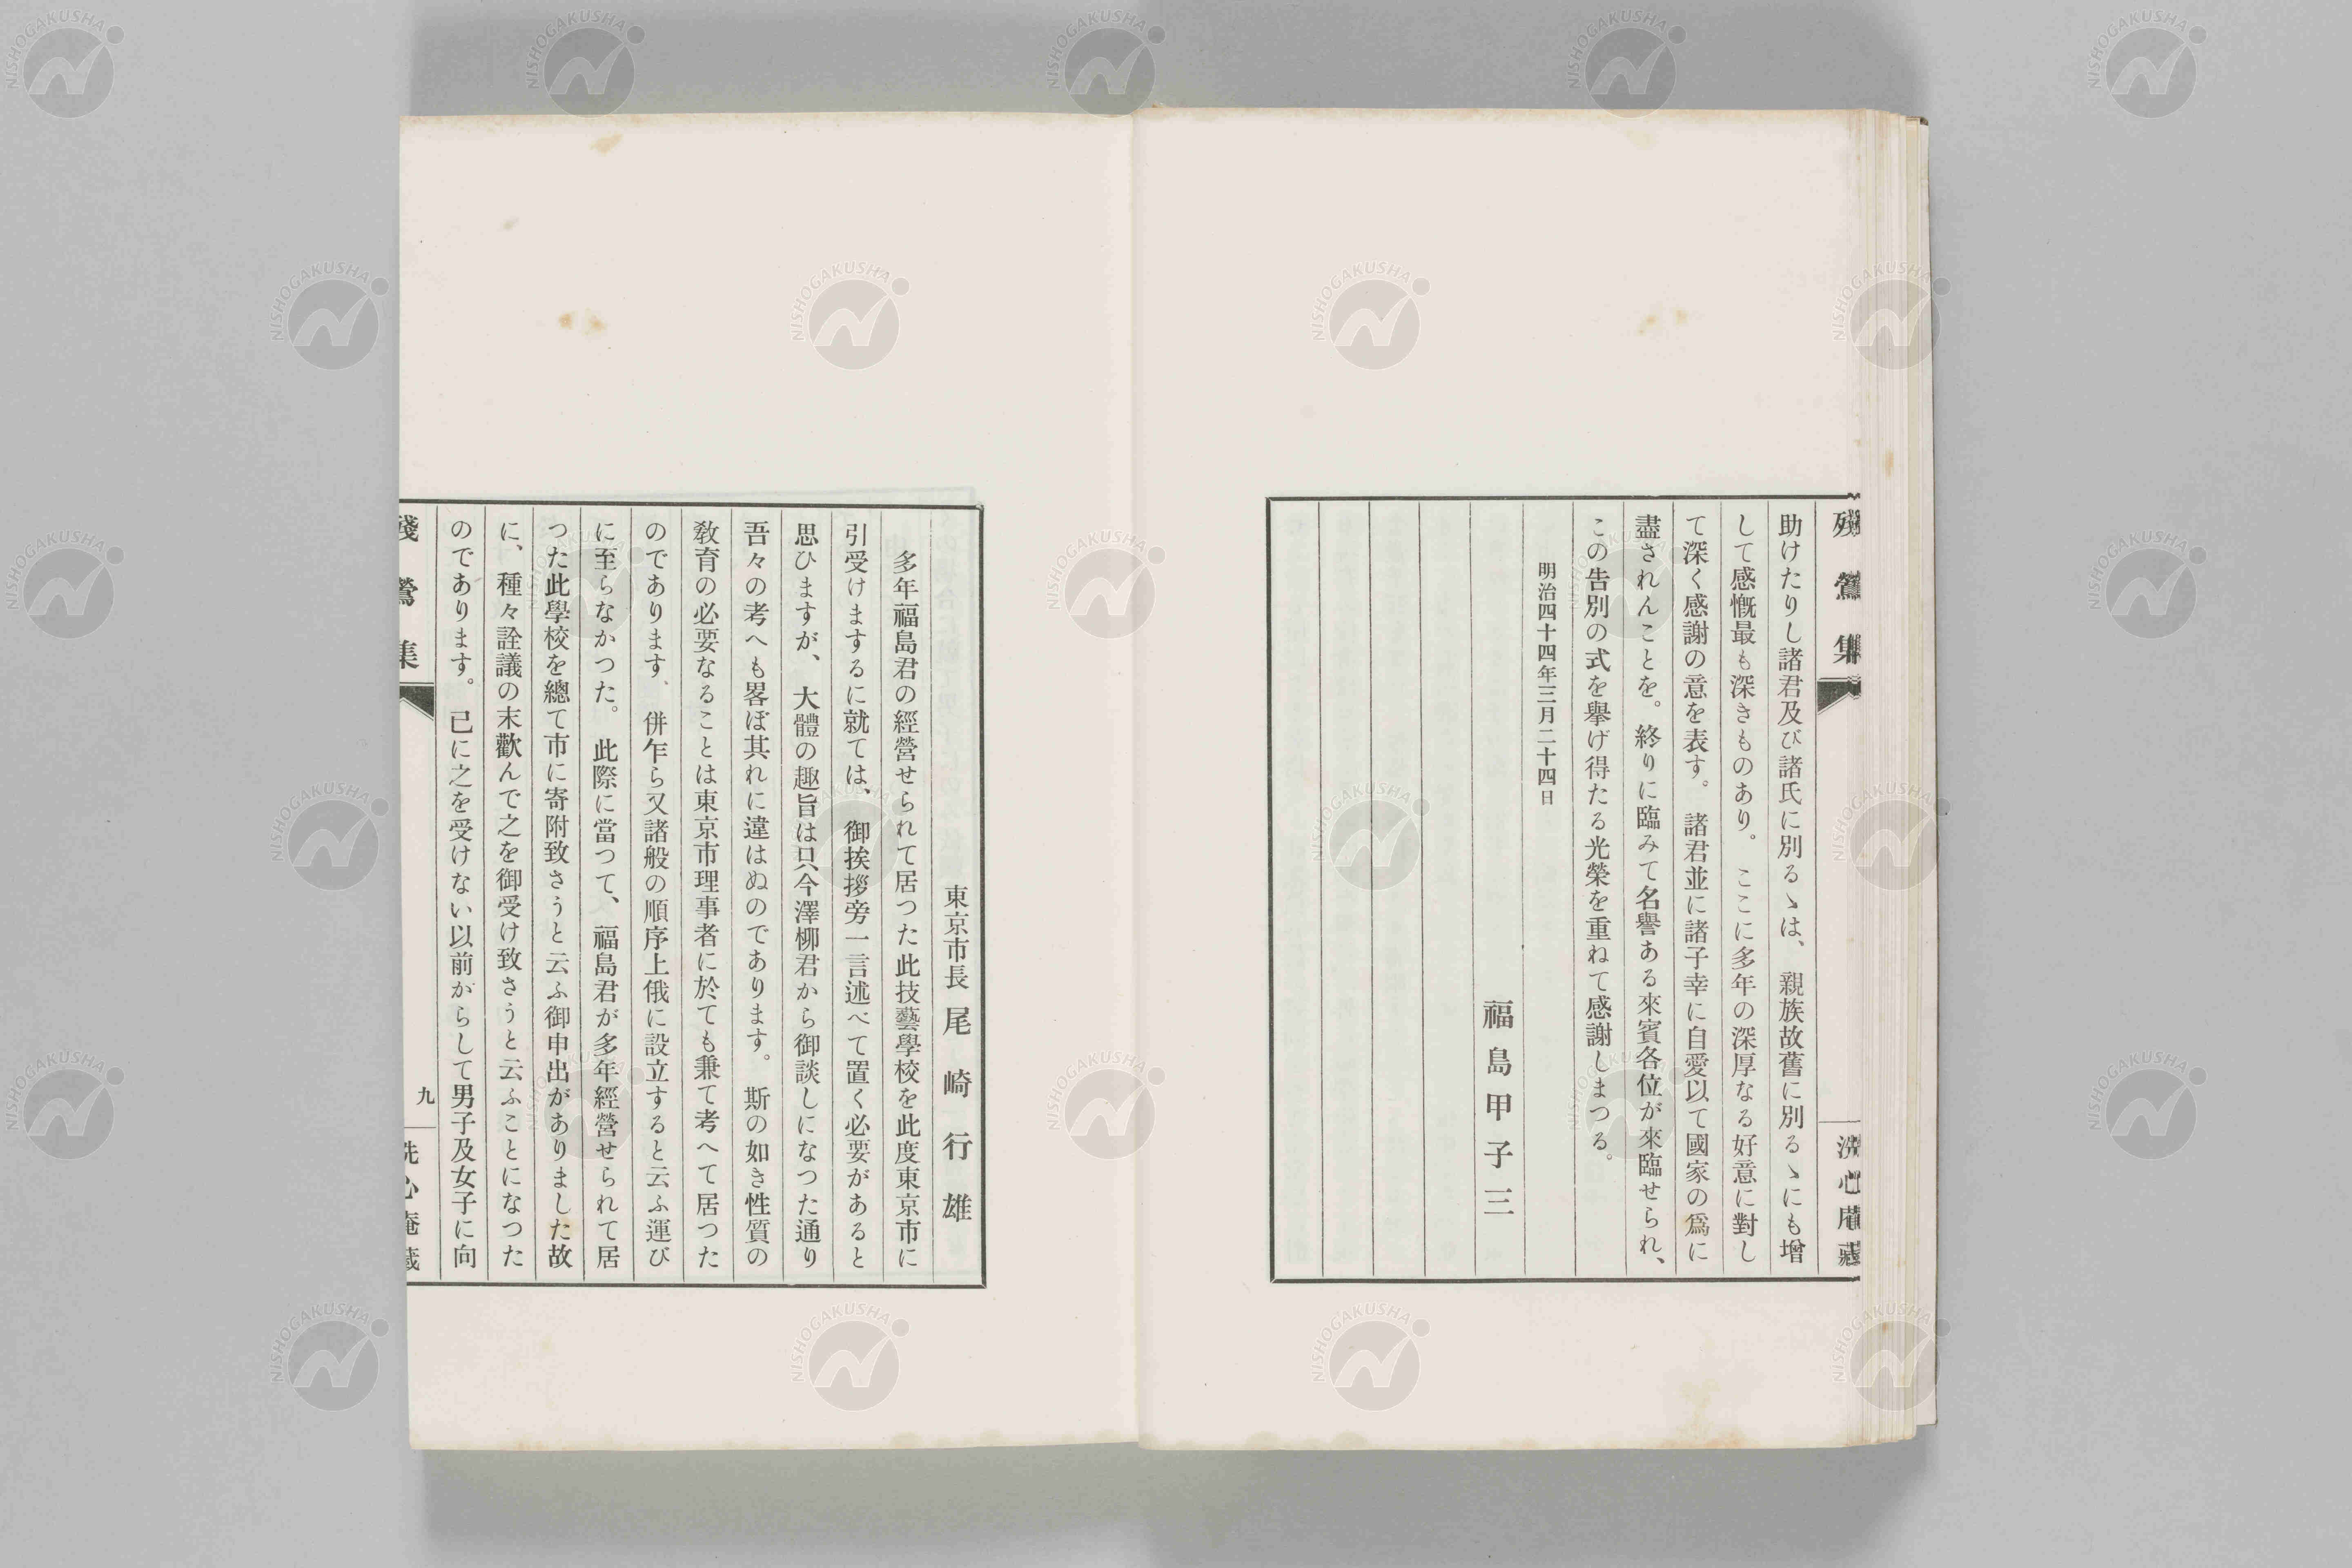 殘鶯集
洗心庵藏
助けたりし諸君及び諸氏に別るゝは、親族故舊に別るゝにも增
して感慨最も深きものあり。ここに多年の深厚なる好意に對し
て深く感謝の意を表す。諸君並に諸子幸に自愛以て國家の爲に
盡されんことを。終りに臨みて名譽ある來賓各位が來臨せられ、
この告別の式を擧げ得たる光榮を重ねて感謝しまつる。
明治四十四年三月二十四日
福島甲子三
東京市長 尾崎行雄
多年福島君の經營せられて居つた此技藝學校を此度東京市に
引受けまするに就ては、御挨拶旁一言述べて置く必要があると
思ひますが、大體の趣旨は只今澤柳君から御談しになつた通り
吾々の考へも畧ぼ其れに違はぬのであります。斯の如き性質の
敎育の必要なることは東京市理事者に於ても兼て考へて居つた
のであります、併乍ら又諸般の順序上俄に設立すると云ふ運び
に至らなかつた。此際に當つて、福島君が多年經營せられて居
つた此學校を總て市に寄附致さうと云ふ御申出がありました故
に、種々詮議の末歡んで之を御受け致さうと云ふことになつた
のであります。已に之を受けない以前がらして男子及女子に向
殘鶯集
九
洗心庵藏
NISHOGAKUSHA